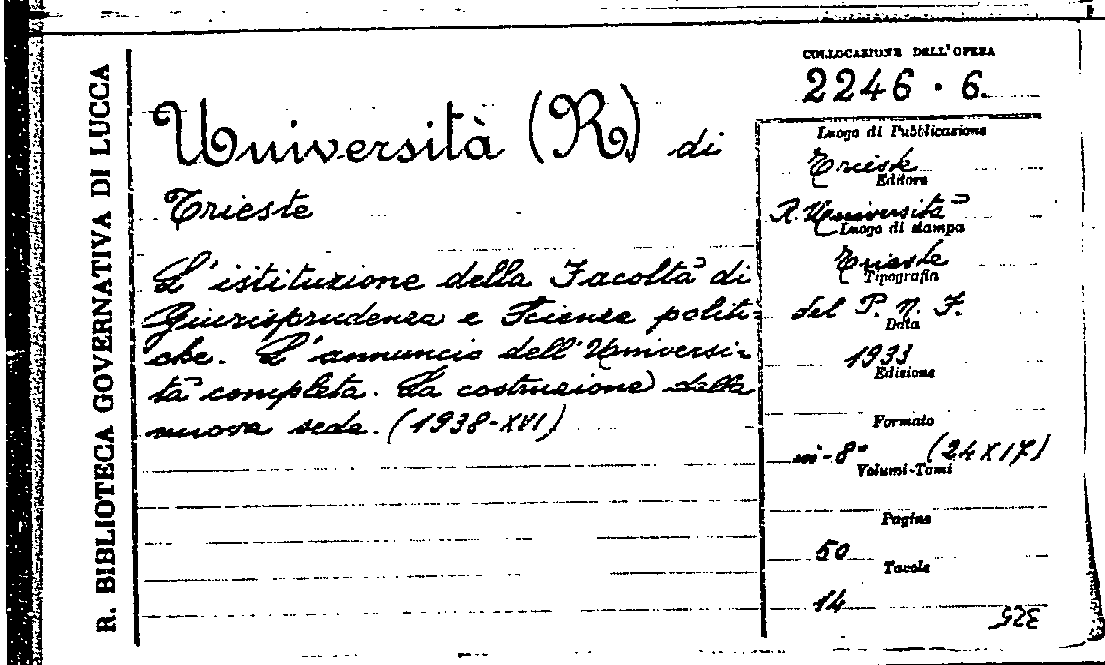 R. BIBLIOTECA GOVERNATIVA DI LUCCA
Università (R) di
Trieste
L'istituzione della Facoltà di
Giurisprudenza e Scienze politi-
che. L'annuncio dell'Universi-
tà completa. La costruzione della
nuova sede. (1938-XVI)
COLLOCAZIONE DELL'OPERA
2246 . 6.
Luogo di Pubblicazione
Trieste
Editore
R. Università
Luogo di stampa
Trieste
Tipografia
del P. N. F.
Data
1933
Edizione
Formato
in-8° (24X17)
Volumi-Tomi
Pagine
50
Tavole
14
325